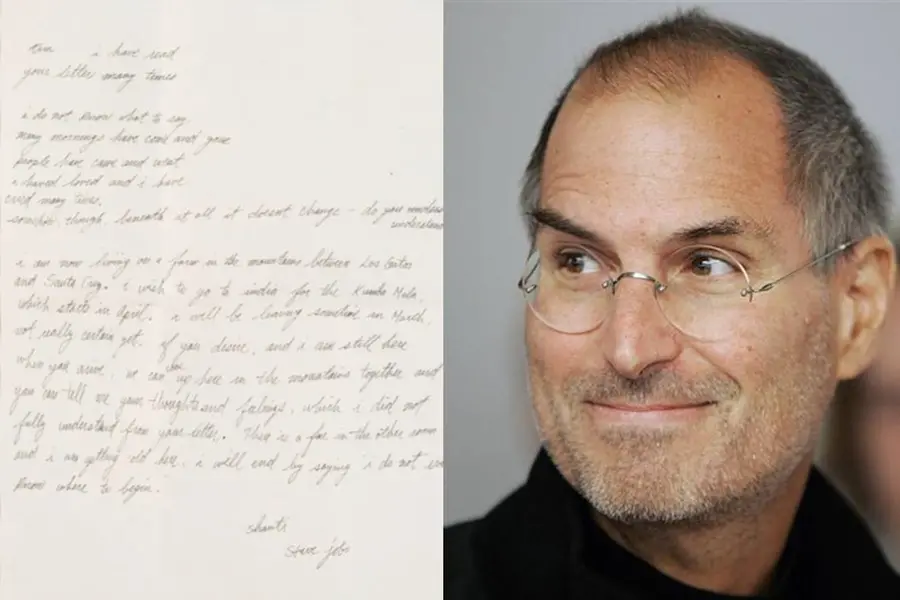 tim i have read
your letter many times
i do not know what to say.
many mornings have come and gone
people have came and went
i haved loved and i have
cried many times.
somehow, though, beneath it all it doesnt change – do you
understand
i am now living on a farm in the mountains between Los Gatos
and Santa Cruz. i wish to go to india for the Kumba Mela,
which starts in April. i will be leaving sometime in March,
not really certain yet. if you desire, and i am still here
when you arive, we can up here in the mountains together and
you can tell me your thoughts and feelings, which i did not
fully understand from your letter. There is a fire in the other room
and i am getting old here. i will end by saying i do not even
know where to begin.
shanti
steve jobs